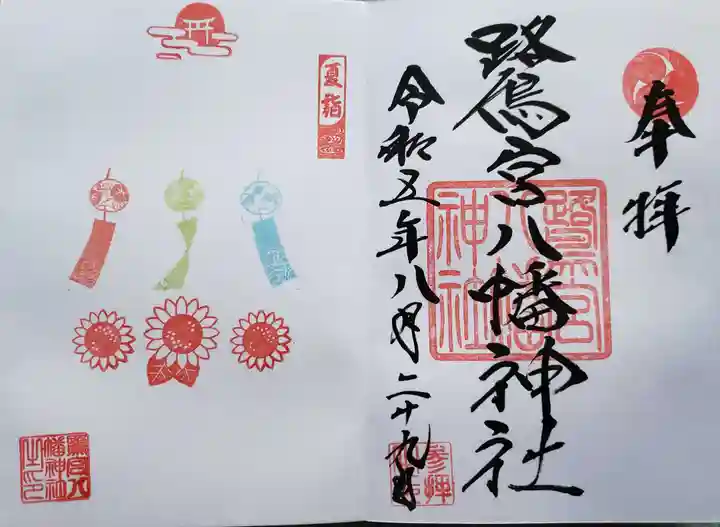 奉拝
鷺宮八幡神社
鷺宮八幡神社
令和五年八月二十九日
参拝
夏詣
鷺宮八幡神社之印